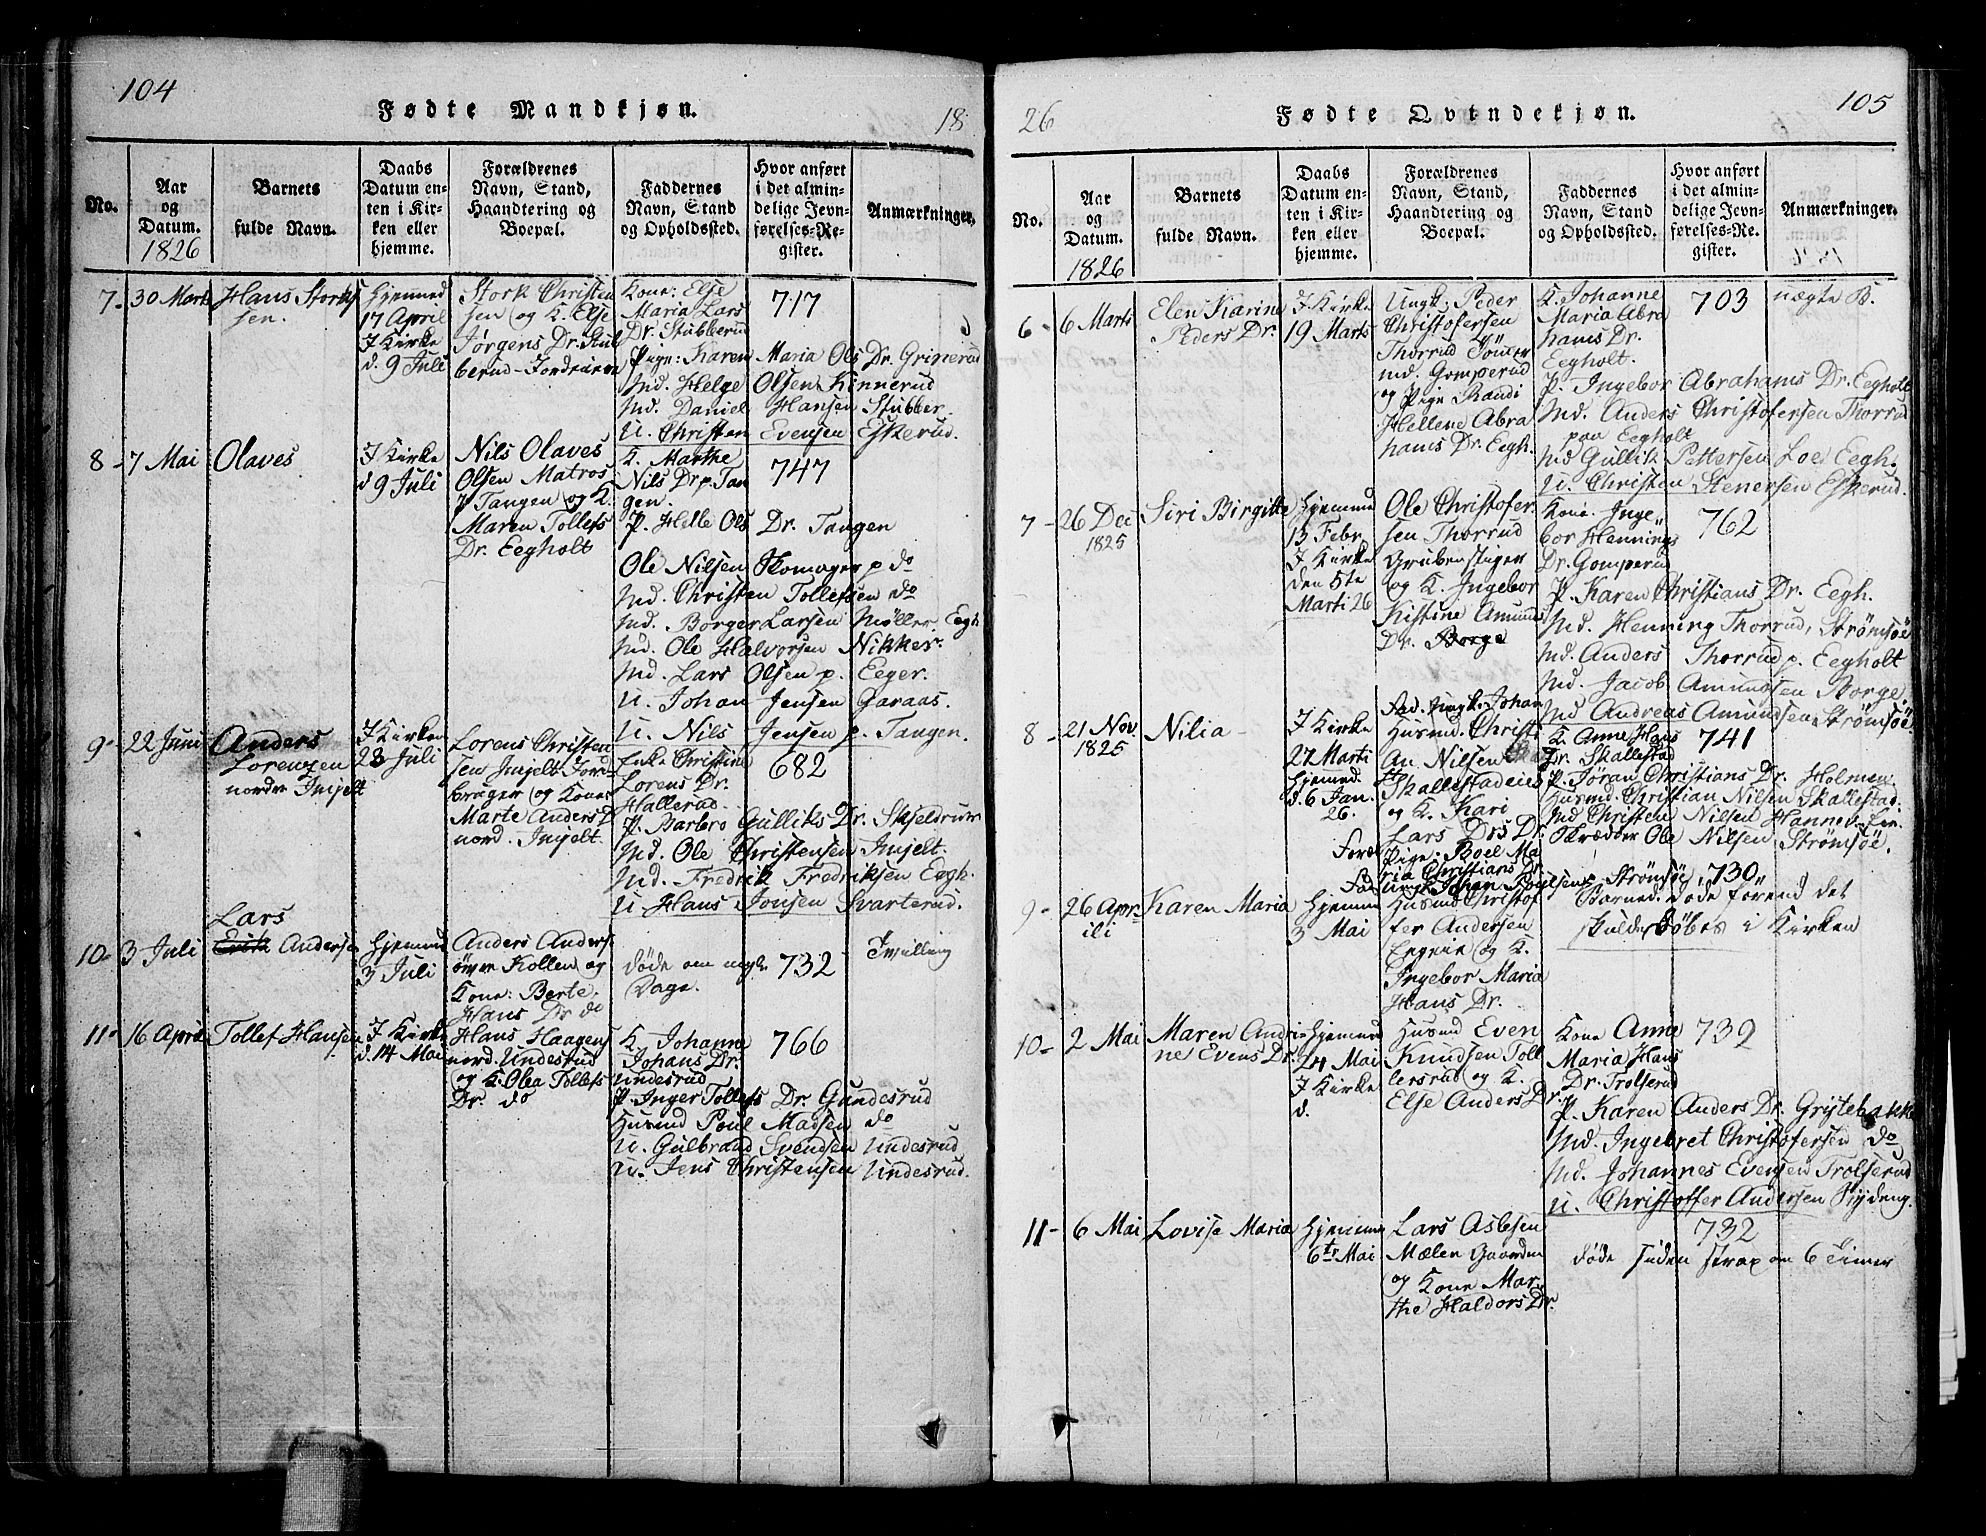 104
Fødte Mandkjøn.
18
No.
Aar og Datum.
1826
Barnets fulde Navn.
Daabs Datum enten i Kirken eller hjemme.
Forældrenes Navn, Stand, Haandtering og Boepæl.
Faddernes Navn, Stand og Opholdssted.
Hvor anført i det almindelige Jevnførelses-Register.
Anmærkninger.
7-
30 Marts
Hans Stork-
sen.
Hjemmed
17 April
I Kirke
d. 9 Juli
Stork Christen
sen og K. Else
Jørgens Dr. Stub
berud
Kone: Else
Maria Lars
Dr. Stubberud
Pige: Karen Maria Ols Dr. Grinerud
Md. Helge Olsen Kinnerud
Md. Daniel Hansen Stubber
U. Christen Evensen Eskerud.
717
8-
7 Mai
Olaves
I Kirke
d 9 Juli
Nils Olaves
Olsen Matros
p Tangen og K.
Maren Tollefs
Dr. Eegholt
K. Marthe
Nils Dr p. Tan
gen.
P. Helle Ols Dr. Tangen
Ole Nilsen Skomager p do
Md. Christen Tollefsen do
Md. Borger Larsen Møller. Eegh
Md. Ole Halvorsen Nikker.
Md. Lars Olsen p. Eeger.
U. Johan Jensen Garaas.
U. Nils Jensen p. Tangen.
747
9-
22 Juni
Anders
Lorenzen
nordre Imjelt
I Kirken
23 Juli
Lorens Christen
sen Imjelt Jord
bruger og Kone
Marte Anders D
nord. Imjelt.
Enke Christine
Lorens Dr.
Hallerud.
P. Barbro Gulliks Dr. Skjeldrum
Md. Ole Christensen Imjelt.
Md. Fredrik Fredriksen Eegh.
U Hans Jonsen Svarterud.
682
10-
3 Juli
Lars
Erik Andersen
Hjemmed
3 Juli
Anders Anders.
øvre Kollen og
Kone: Berte
Hans Dr do
døde om nogle
Dage.
732
Tvilling
11-
16 April
Tollef Hansen
I Kirke
d. 14 Mai
Hans Haagens
nord. Undesrud
og K. Olea Tollefs
Dr. do
K. Johanne
Johans Dr.
Undesrud
P. Inger Tollefs Dr. Gundesrud
Husmd Poul Madsen do
U. Gulbrand Svendsen Undesrud
U. Jens Christensen Undesrud.
766
26
Fødte Qvindekjøn.
105
No.
Aar og Datum.
1826
Barnets fulde Navn.
Daabs Datum enten i Kirken eller hjemme.
Forældrenes Navn, Stand, Haandtering og Boepæl.
Faddernes Navn, Stand og Opholdssted.
Hvor anført i det almindelige Jevnførelses-Register.
Anmærkninger.
6-
6 Marts
Elen Karine
Peders Dr.
I Kirke
19 Marts
Ungk: Peder
Christofersen
Thorrud Tømer
md. Gomperud
og Pige Randi
Hellene Abra
hams Dr. Eegh.
K. Johanne
Maria Abra
hams Dr.
Eegholt.
P. Ingebor Abrahams Dr. Eegholt
Md. Anders Christofersen Thorrud
paa Eegholt
Md Gullik Pettersen Loe Eegh.
U. Christen Stenersen Eskerud.
703
uægte B.
7-
26 Dec
1825
Siri Birgitte
Hjemmed
13 Febr
I Kirke
den 5te
Marti 26
Ole Christofer
sen Thorrud
Grubenstiger
og K. Ingebor
Kistine Amunds
Dr. Borge
Kone. Inge
bor Hennings
Dr. Gomperud
P. Karen Christians Dr. Eegh.
Md. Henning Thorrud, Strømsöe
Md. Anders Thorrud p. Eegholt
Md. Jacob Amundsen Borge
Md Andreas Amundsen Strømsöe
762
8-
21 Nov
1825
Nilia-
I Kirke
27 Marti
Hjemmed.
d. 6 Jan.
26.
Husmd. Christi
An. Nilsen
Skallestadeie
og K. Kari
Lars Drs Dr.
Pige: Boel Ma
ria Christians Dr
K. Anne Hans
Dr. Skallestad
P. Jøran Christians Dr. Holmen
Husmd. Christian Nilsen Skallestad.
Md Christen Nilsen Hannev
Skrædder Ole Nilsen Strømsøe.
741
Strømsöe, 730
9-
26 Apr
ili
Karen Maria
Hjemme
3 Mai
Husmd Christof
fer Andersen
og K.
Ingebor Maria
Hans Dr.
Barned. døde førend det
skulde døbes i Kirken
10-
2 Mai
Maren Andri-
ne Evens Dr.
Hjemme
24 Mai
I Kirke
d.
Husmd Even
Knudsen Toll
lersrud og K.
Else Anders Dr.
Kone Anne
Maria Hans
Dr. Trolserud
P. Karen Anders Dr. Grytebakke
Md. Ingebret Christofersen do
Md. Johannes Evensen Trolserud
U. Christoffer Andersen Rydeng.
739
11-
6 Mai
Lovise Maria
Hjemme
6te Mai
Lars Aslesen
Mælen Gaarden
og Kone Mar
the Haldors Dr.
732
døde siden strax om 6 Timer